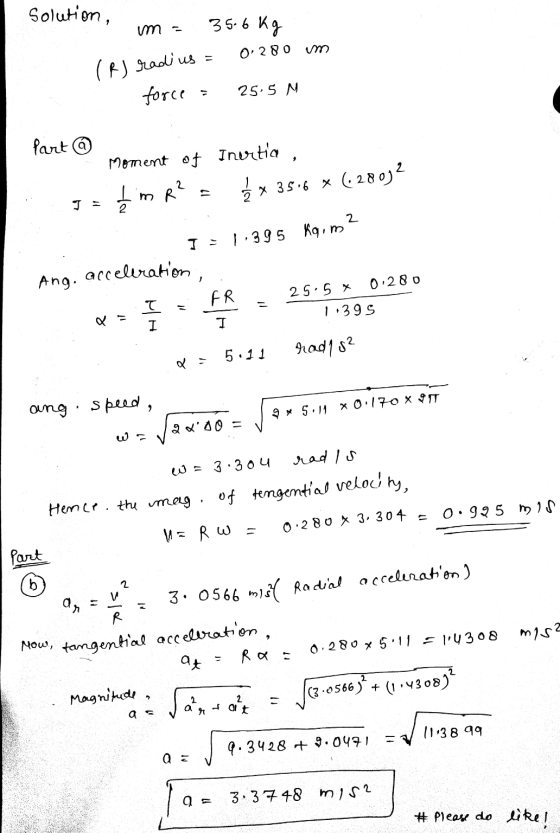 Solution,
m = 35.6 Kg
(R) radius = 0.280 m
force = 25.5 N
Part (a)
Moment of Inertia,
I = 1/2 m R² = 1/2 × 35.6 × (.280)²
I = 1.395 Kg.m²
Ang. acceleration,
α = τ/I = FR/I = 25.5 × 0.280 / 1.395
α = 5.11 rad/s²
ang. speed,
ω = √(2αΔθ) = √(2 × 5.11 × 0.170 × 2π)
ω = 3.304 rad/s
Hence. the mag. of tengential velocity,
V = Rω = 0.280 × 3.304 = 0.925 m/s
Part
(b)
aᵣ = v²/R = 3.0566 m/s² (Radial acceleration)
Now, tangential acceleration,
aₜ = Rα = 0.280 × 5.11 = 1.4308 m/s²
Magnitude,
a = √(a²ᵣ + a²ₜ) = √((3.0566)² + (1.4308)²)
a = √(9.3428 + 2.0471) = √11.3899
a = 3.3748 m/s²
# Please do like!